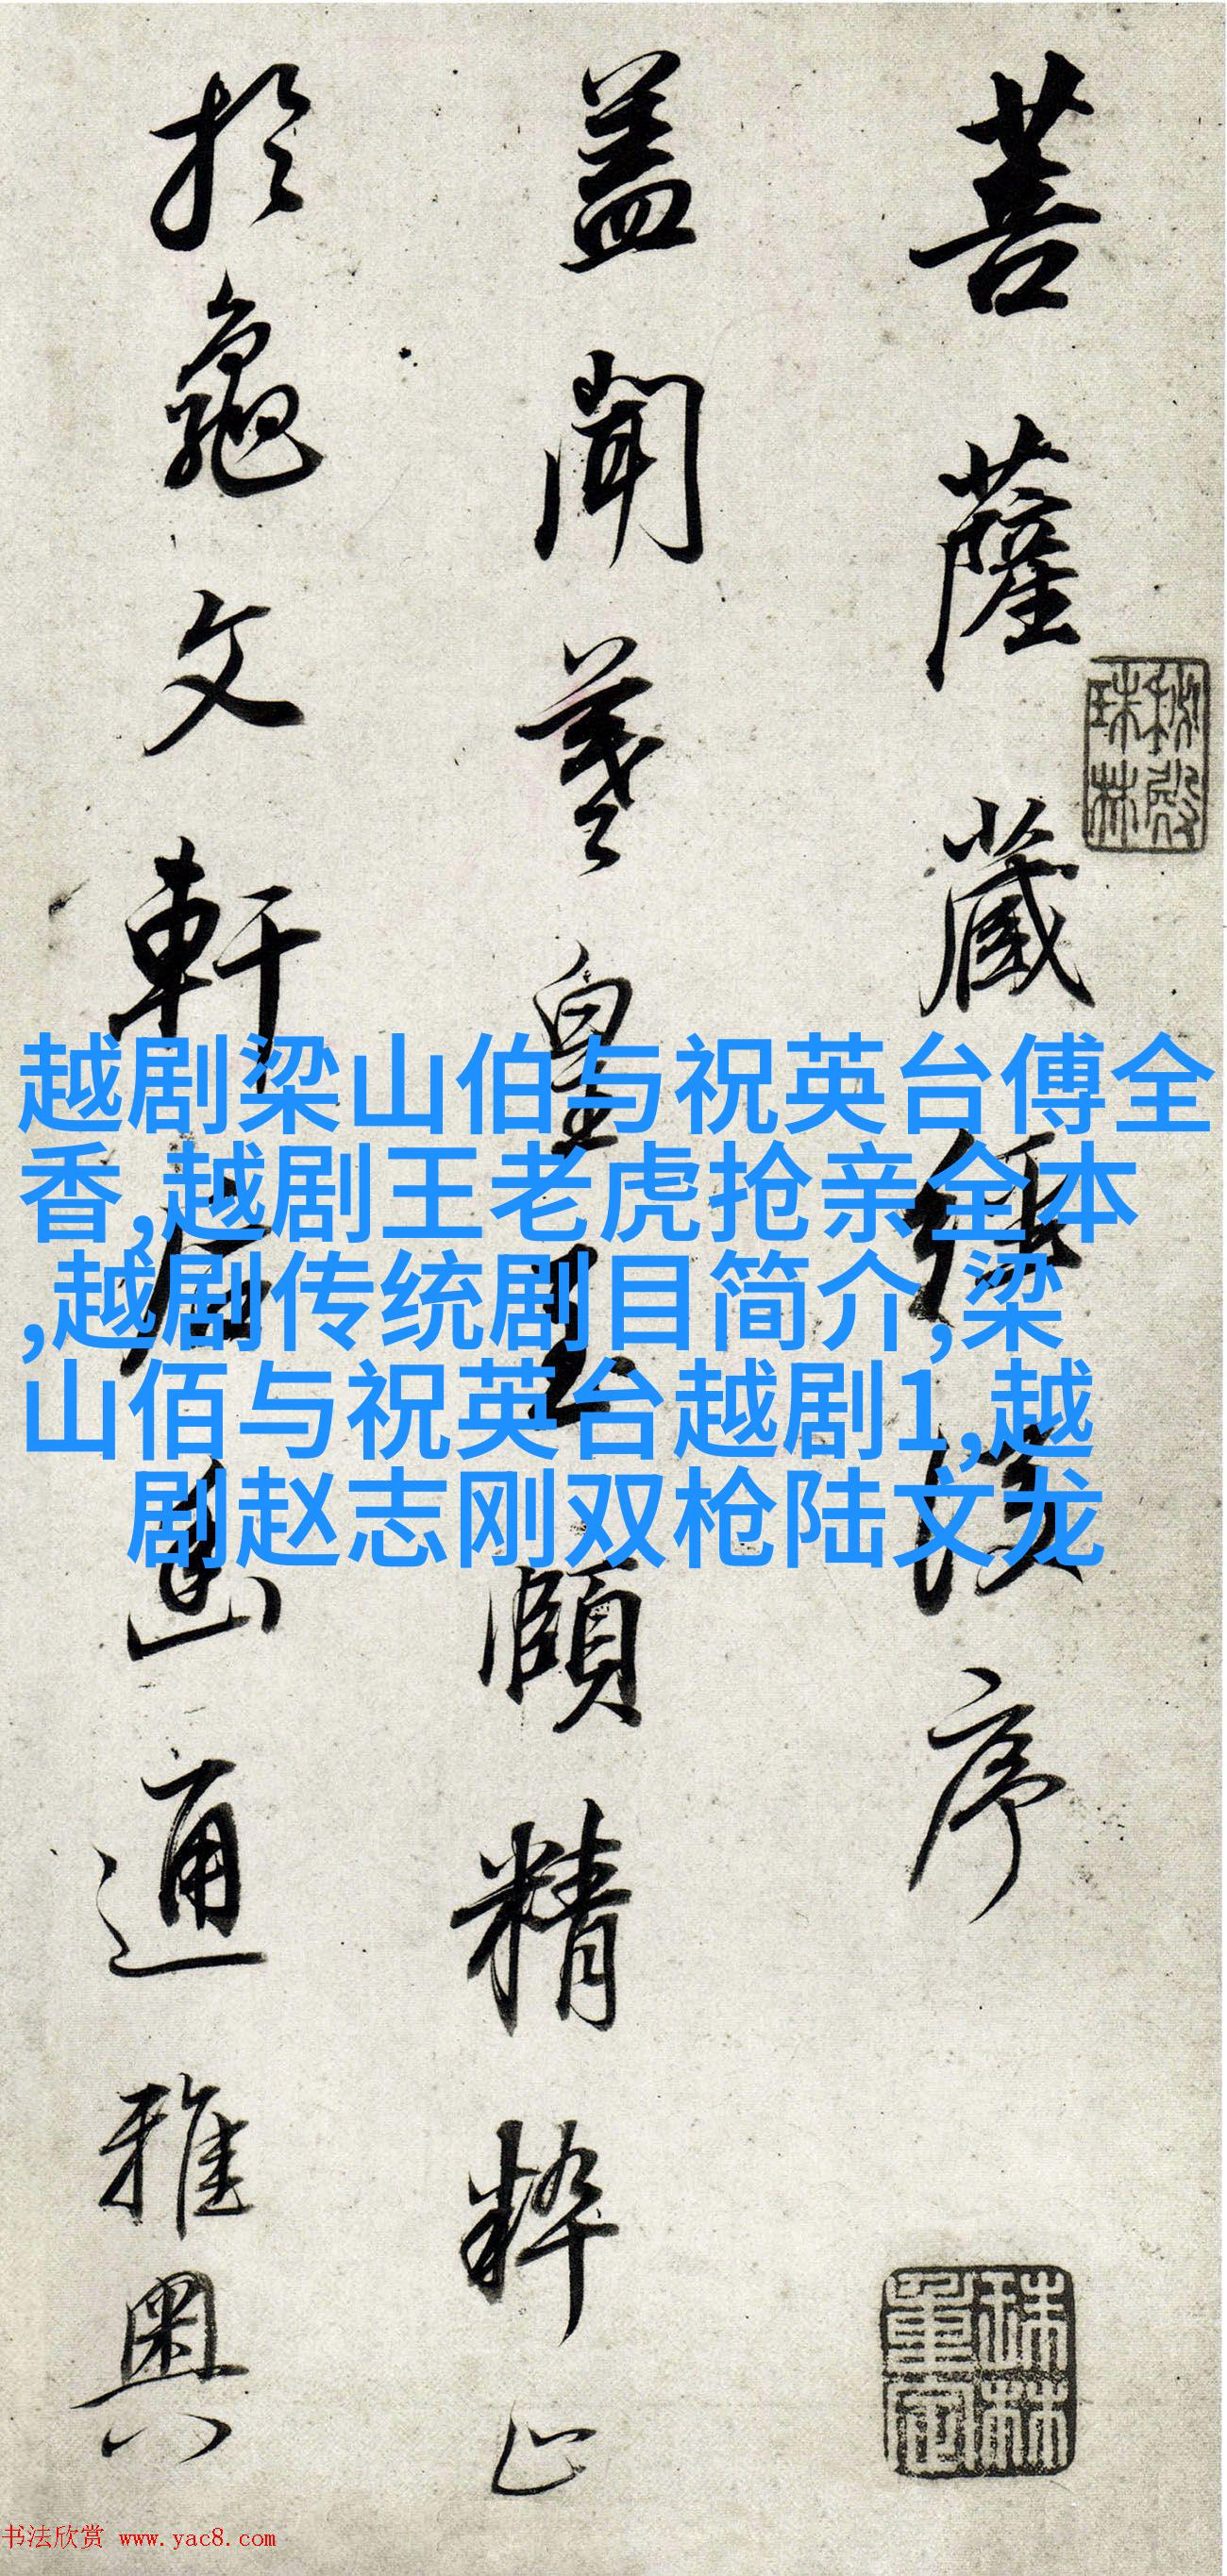 菩薩藏經後序
蓋聞羲皇至賾精粹止
於龜文軒后幽通雅奧
秘殿珠林
珠林重定
越剧梁山伯与祝英台傅全
香,越剧王老虎抢亲全本
,越剧传统剧目简介,梁
山佰与祝英台越剧1,越
剧赵志刚双枪陆文龙
书法欣赏 www.yac8.com